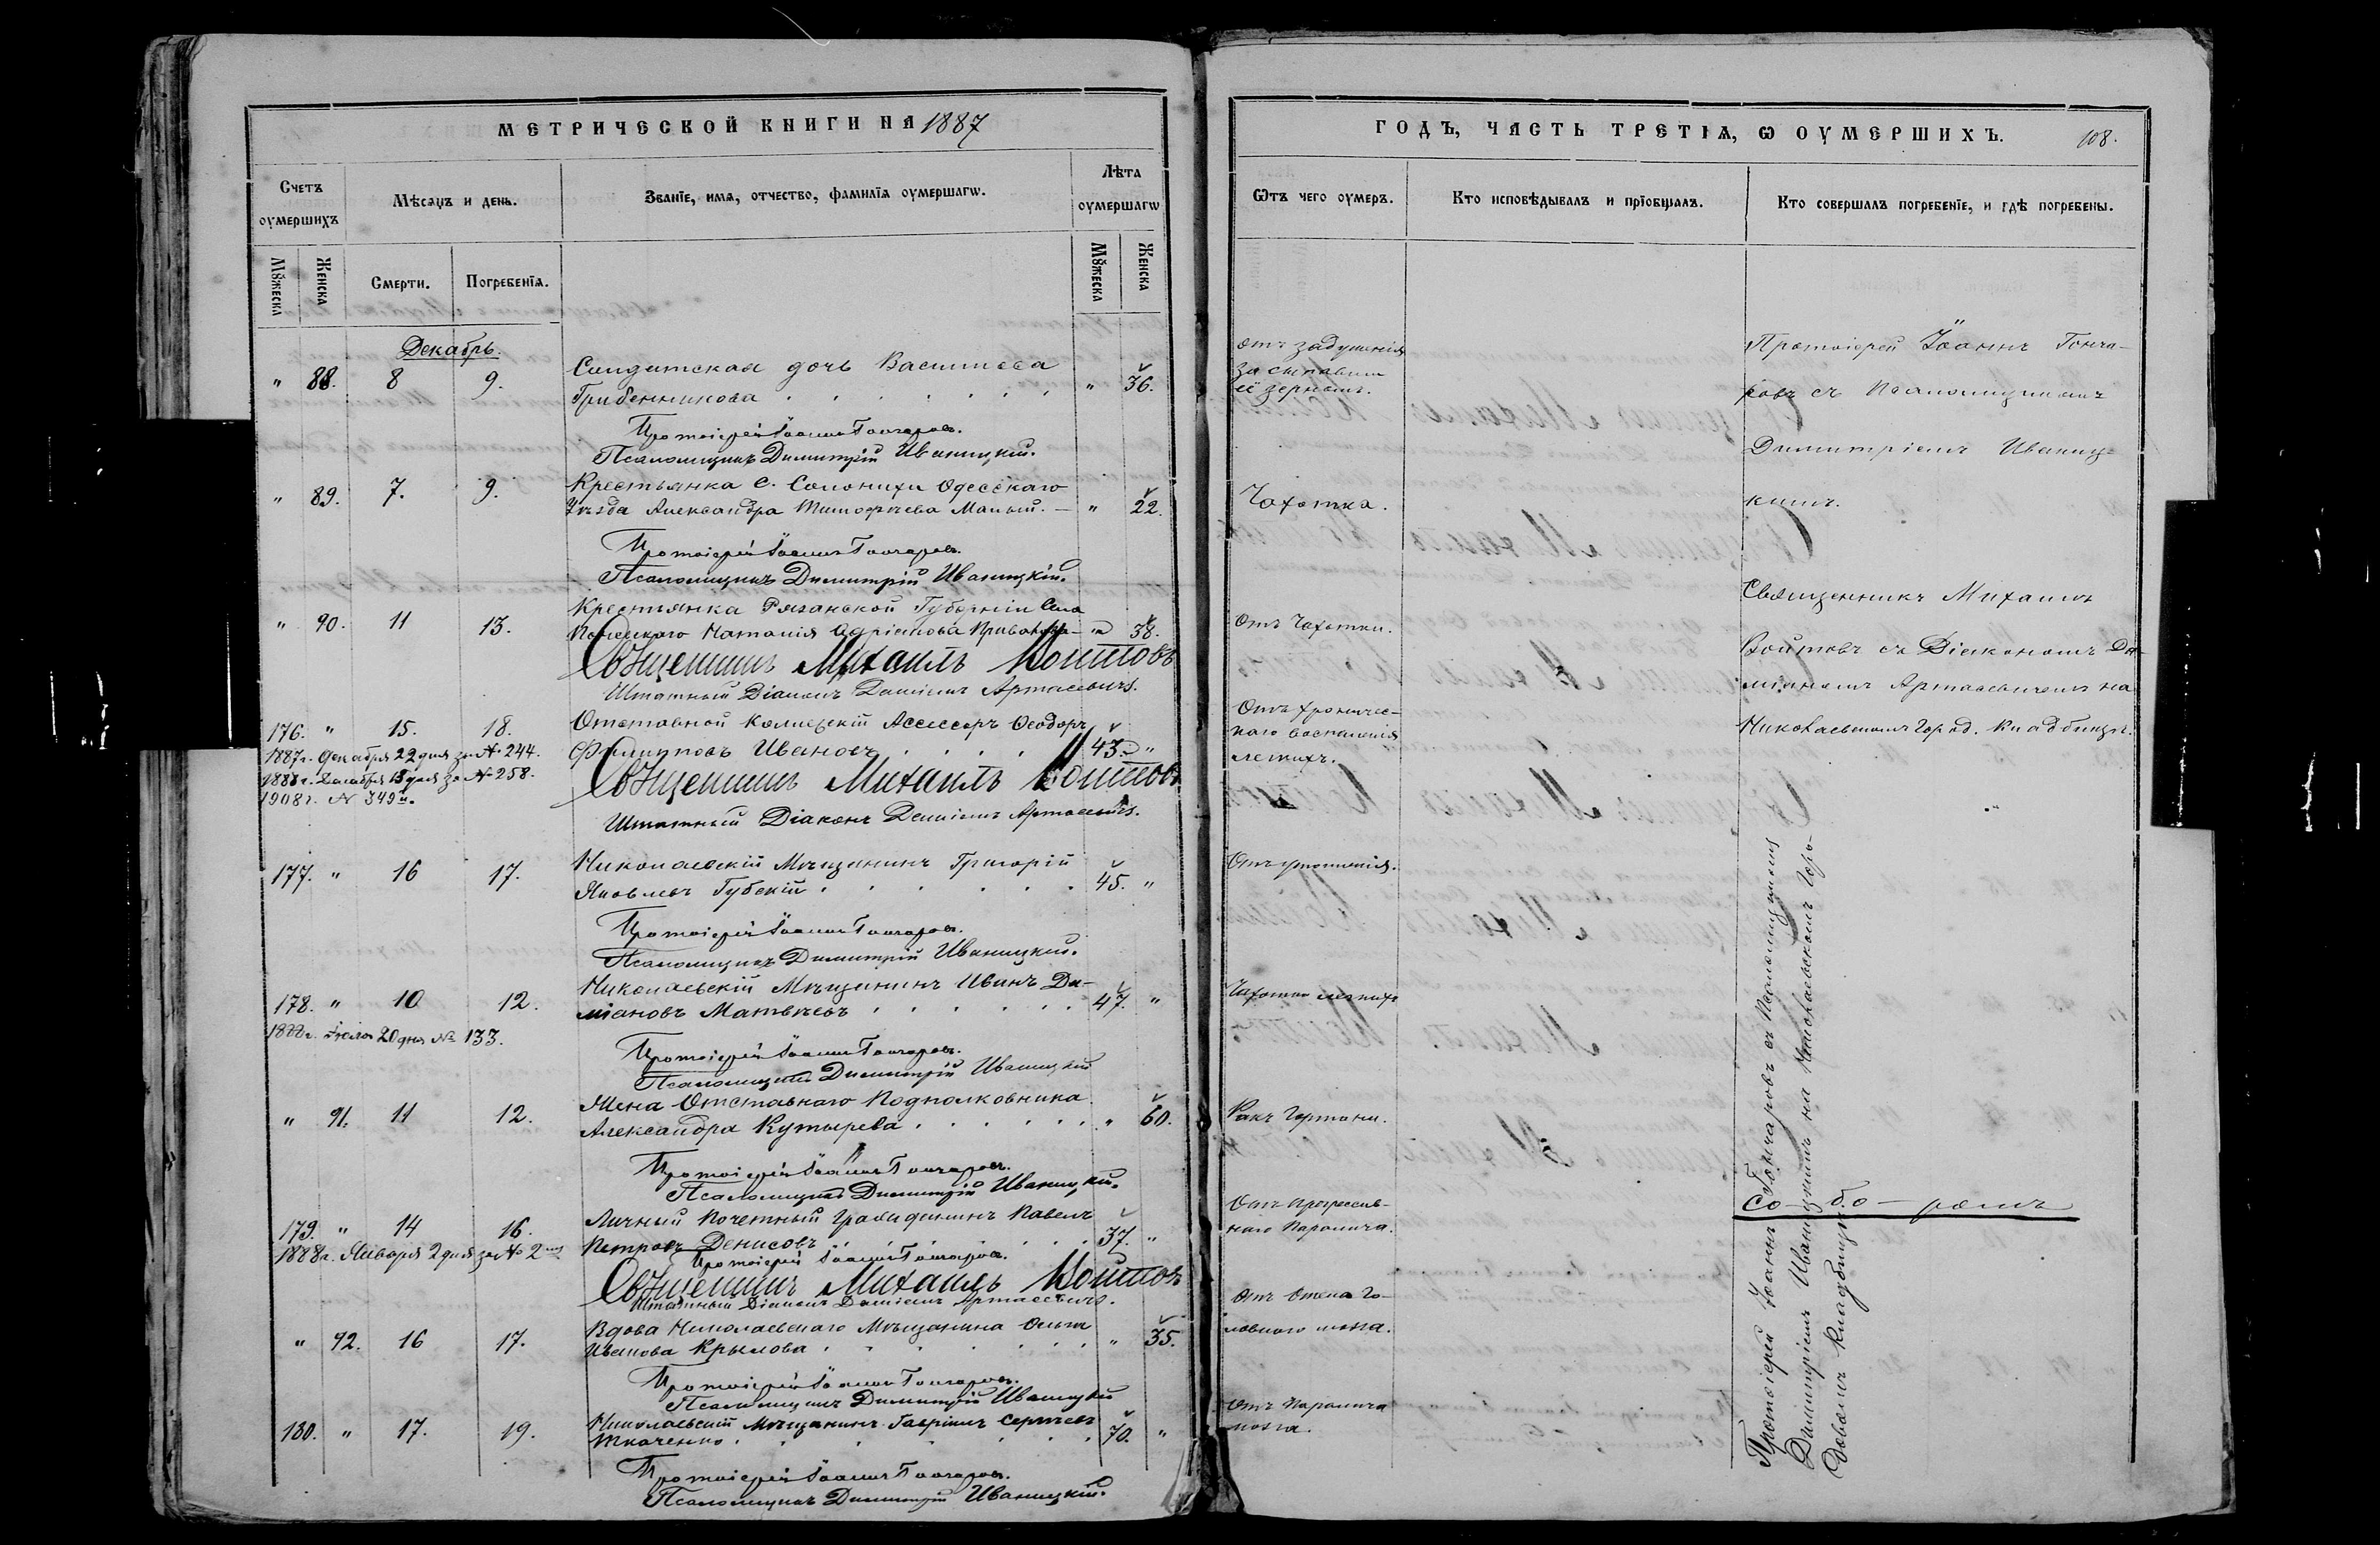 МЕТРИЧЕСКОЙ КНИГИ НА 1887
Счетъ оумершихъ
Мѣсяцъ и день.
Званїе, имя, отчество, фамилїя оумершагѡ.
Лѣта оумершагѡ
Мꙋжеска
Женска
Смерти.
Погребенїя.
Мꙋжеска
Женска
Декабрь.
" 88. 8 9. Солдатская дочь Василиса " 36.
Гребенникова
Протоіерей Іоаннъ Гончаровъ.
Псаломщикъ Димитрій Иваницкій.
" 89. 7. 9. Крестьянка С. Солонихи Одесскаго
Уѣзда Александра Тимофѣева Малый. — " 22.
Протоіерей Іоаннъ Гончаровъ.
Псаломщикъ Димитрій Иваницкій.
" 90. 11 13. Крестьянка Рязанской Губерніи Села
Наталія Адріанова — " 38.
Священникъ Михаилъ Войтовъ
Штатный Діаконъ Даміанъ Артасевичъ.
176. " 15. 18. Отставной Коллежскій Ассесоръ Ѳеодоръ
Филипповъ Ивановъ 43. "
1887г. Декабря 22 дня за № 244.
1888г. Декабря 18 дня за № 258.
1908г. № 349й.
Священникъ Михаилъ Войтовъ
Штатный Діаконъ Даміанъ Артасевичъ.
177. " 16 17. Николаевскій Мѣщанинъ Григорій
Яковлевъ Губскій 45. "
Протоіерей Іоаннъ Гончаровъ.
Псаломщикъ Димитрій Иваницкій.
178. " 10 12. Николаевскій Мѣщанинъ Иванъ Да-
міановъ Матвѣевъ 47. "
1888г. 20 дня № 133.
Протоіерей Іоаннъ Гончаровъ.
Псаломщикъ Димитрій Иваницкій
" 91. 11 12. Жена Отставнаго Подполковника
Александра Кутырева " 60.
Протоіерей Іоаннъ Гончаровъ.
Псаломщикъ Димитрій Иваницкій.
179. " 14 16. Личный Почетный Гражданинъ Павелъ
Петровъ Денисовъ 37. "
1888г. Января 2 дня за № 2
Протоіерей Іоаннъ Гончаровъ.
Священникъ Михаилъ Войтовъ
Штатный Діаконъ Даміанъ Артасевичъ.
" 92. 16 17. Вдова Николаевскаго Мѣщанина Ольга
Иванова Крылова " 35.
Протоіерей Іоаннъ Гончаровъ.
Псаломщикъ Димитрій Иваницкій
180. " 17. 19. Николаевскій Мѣщанинъ Гавріилъ Сергѣевъ
Ткаченко 70. "
Протоіерей Іоаннъ Гончаровъ.
Псаломщикъ Димитрій Иваницкій.
ГОДЪ, ЧАСТЬ ТРЕТІЯ, Ѡ ОУМЕРШИХЪ.
108.
Ѿтъ чего оумеръ.
Кто исповѣдывалъ и прїобщалъ.
Кто совершалъ погребенїе, и гдѣ погребены.
отъ задушенія
ее зерномъ.
Чахотка.
Отъ Чахотки.
Отъ хроничес-
каго воспаленія
легкихъ.
Отъ утопленія.
Чахотка легкихъ
Ракъ Гортани.
Отъ Прогрессив-
наго Паралича.
Отъ Отека Го-
ловного мозга.
Отъ Паралича
мозга.
Протоіерей Іоаннъ Гонча-
ровъ съ Псаломщикомъ
Димитріемъ Иваниц-
кимъ.
Священникъ Михаилъ
Войтовъ съ Діакономъ Да-
міаномъ Артасевичемъ на
Николаевскомъ Город. Кладбищѣ.
Со - бо - ромъ
Протоіерей Іоаннъ Гончаровъ съ Псаломщикомъ
Димитріемъ Иваницкимъ на Николаевскомъ Горо-
довомъ Кладбищѣ.